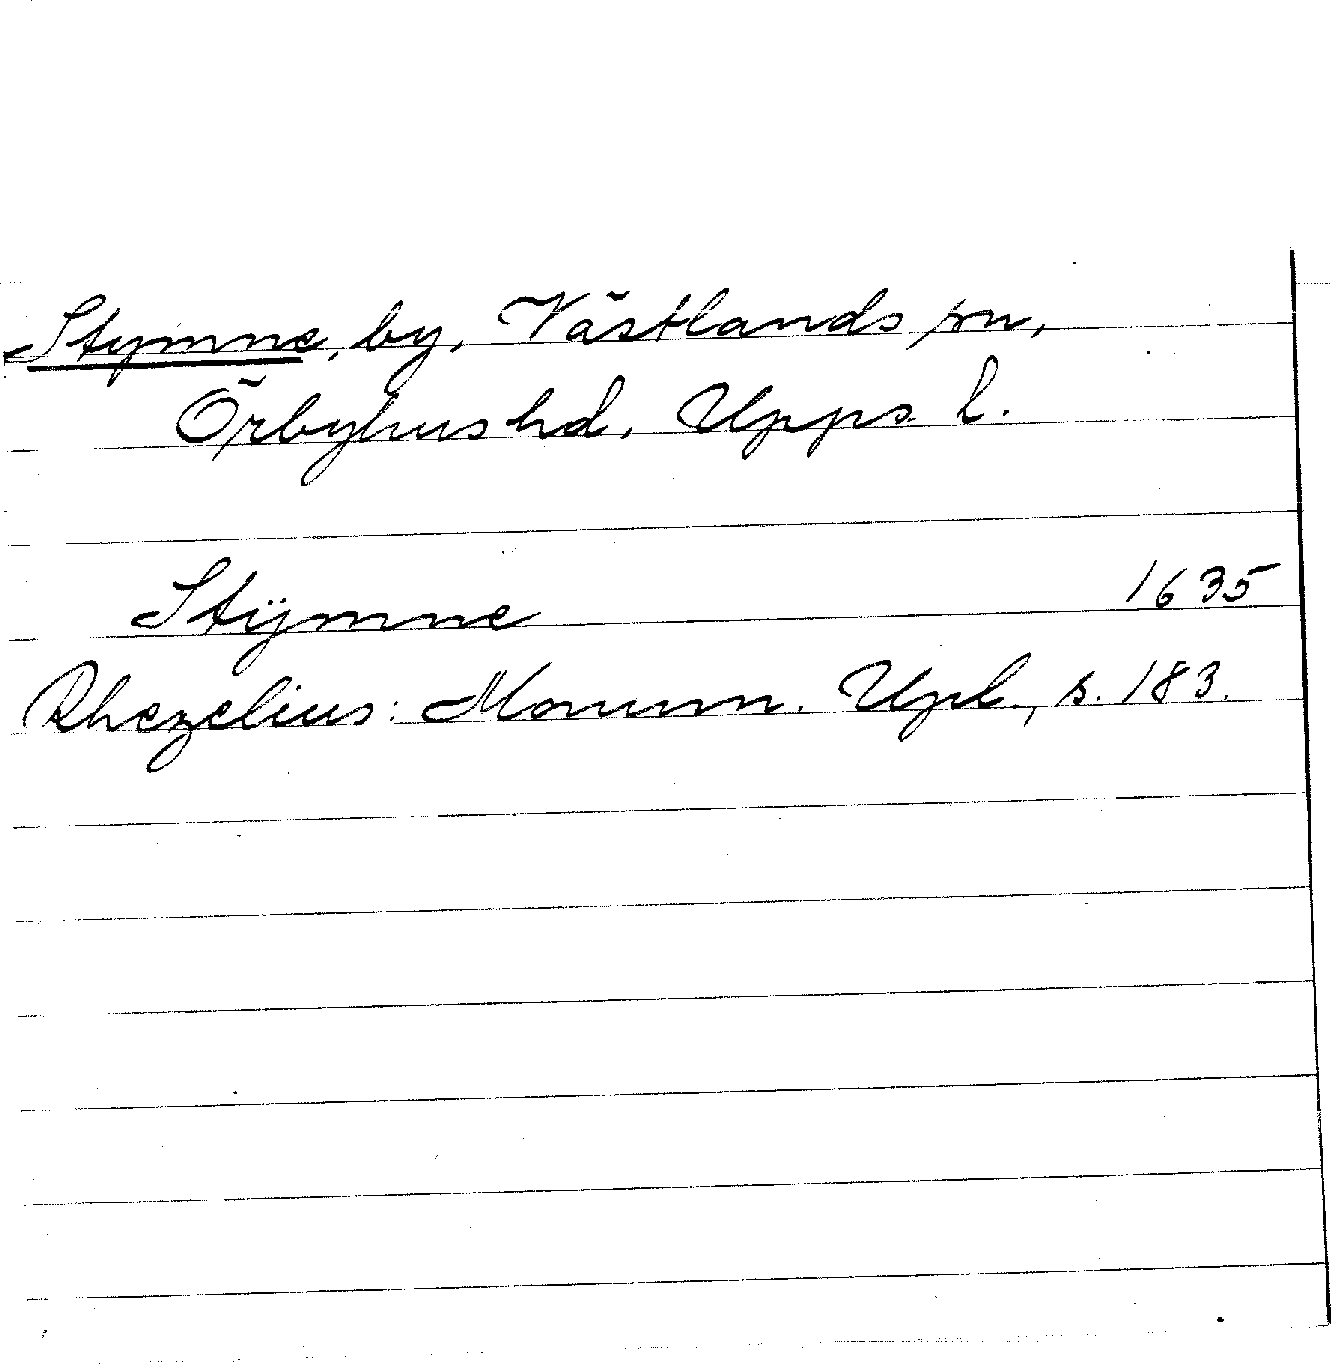 Stymne, by, Västlands sn,
Örbyhus hd. Upps l.
Stÿmne 1635
Rhezelius: Monum. Upl., s. 183.